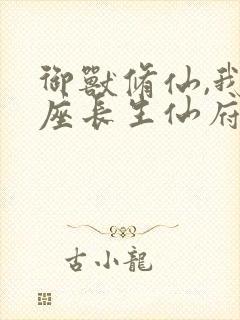 御獸脩仙,我
座長生仙府
古小龍